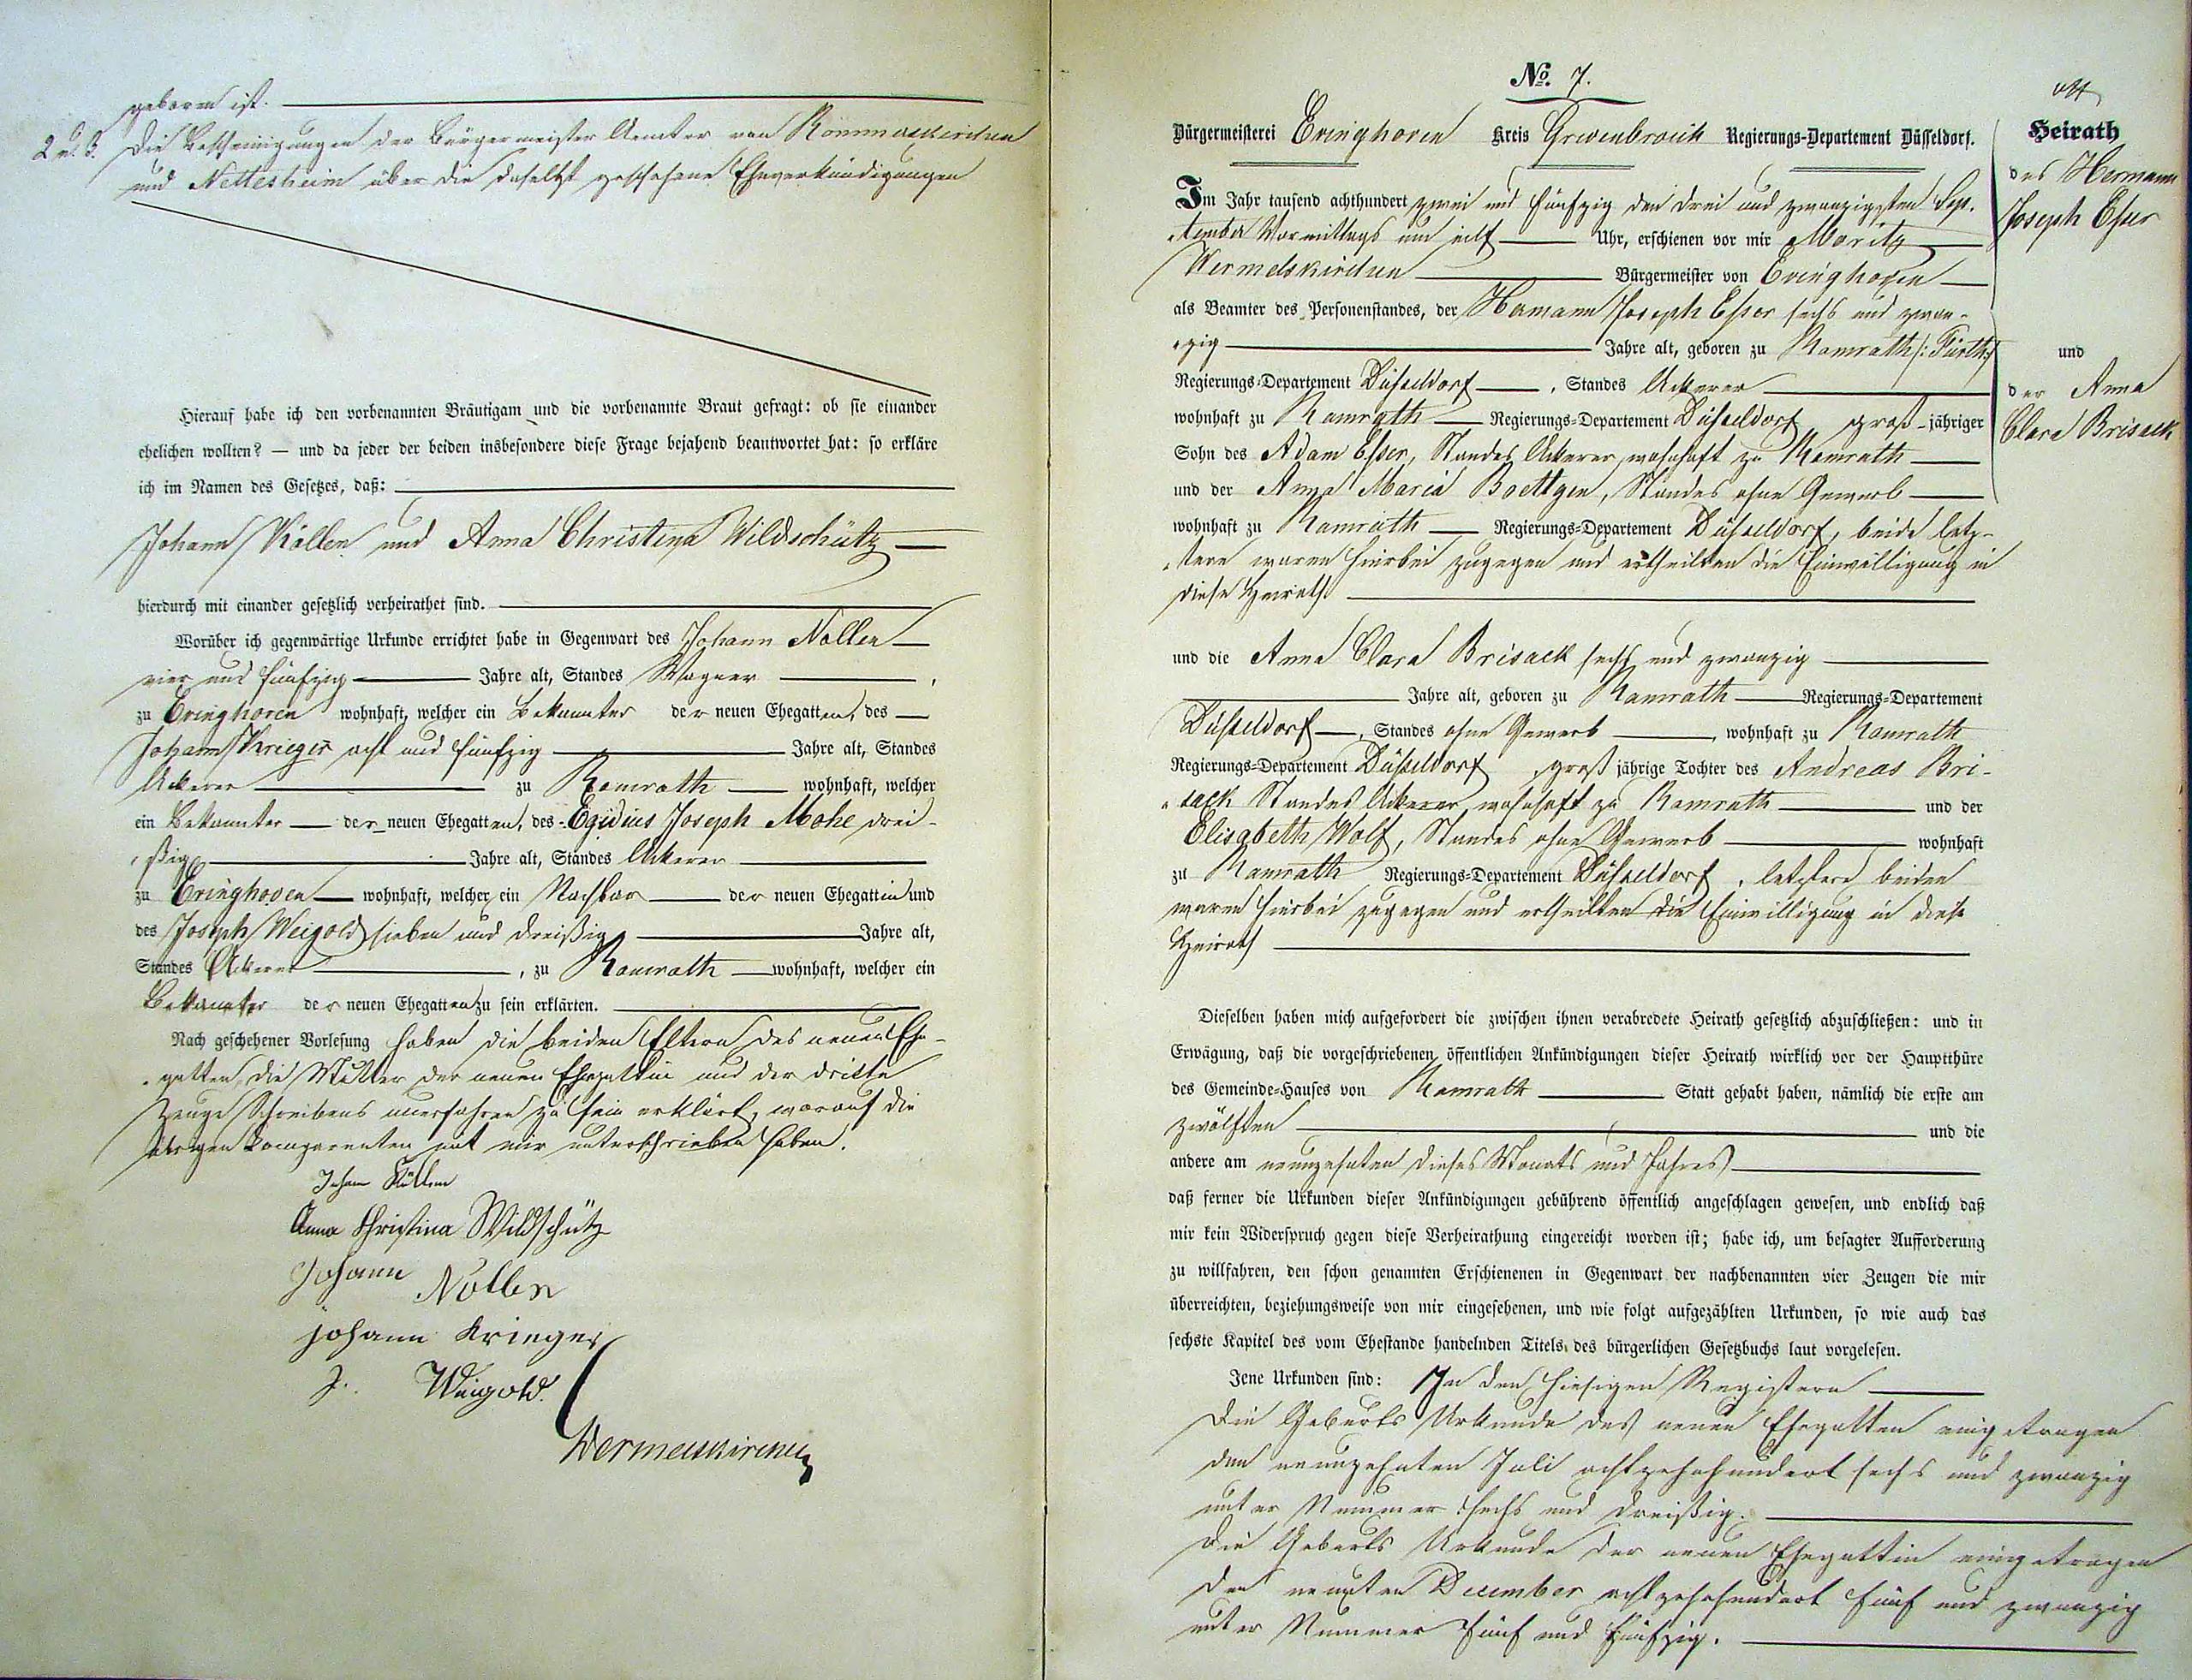 geboren ist.
2 u. 3. Die Bescheinigungen der Bürgermeister Aemter von Rommerskirchen
und Nettesheim über die daselbst geschehene Eheverkündigungen
Hierauf habe ich den vorbenannten Bräutigam und die vorbenannte Braut gefragt: ob sie einander
ehelichen wollten? — und da jeder der beiden insbesondere diese Frage bejahend beantwortet hat: so erkläre
ich im Namen des Gesetzes, daß:
Johann Köllen und Anna Christina Wildschütz
hierdurch mit einander gesetzlich verheirathet sind.
Worüber ich gegenwärtige Urkunde errichtet habe in Gegenwart des Johann Nollen
vier und fünfzig Jahre alt, Standes Wagner ,
zu Evinghoven wohnhaft, welcher ein Bekannter der neuen Ehegatten, des
Johann Krieger acht und fünfzig Jahre alt, Standes
Ackerer zu Ramrath wohnhaft, welcher
ein Bekannter der neuen Ehegatten, des Egidius Joseph Mohe drei-
ßig Jahre alt, Standes Ackerer
zu Evinghoven wohnhaft, welcher ein Nachbar der neuen Ehegattin und
des Joseph Weigold sieben und dreißig Jahre alt,
Standes Ackerer , zu Ramrath wohnhaft, welcher ein
Bekannter der neuen Ehegatten zu sein erklärten.
Nach geschehener Vorlesung haben die beiden Eltern des neuen Ehe-
gatten, die Mutter der neuen Ehegattin und der dritte
Zeuge Schreibens unerfahren zu sein erklärt, worauf die
übrigen Comparenten mit mir unterschrieben haben.
Johann Köllen
Anna Christina Wildschütz
Johann Nollen
Johann Krieger
J. Weigold.
Wermelskirchen
No. 7.
Bürgermeisterei Evinghoven Kreis Grevenbroich Regierungs-Departement Düsseldorf.
Im Jahr tausend achthundert zwei und fünfzig den drei und zwanzigsten Sep-
tember Vormittags um eilf Uhr, erschienen vor mir Moritz
Wermelskirchen Bürgermeister von Evinghoven
als Beamter des Personenstandes, der Hermann Joseph Esser sechs und zwan-
zig Jahre alt, geboren zu Ramrath /: Fürth :/
Regierungs-Departement Düsseldorf , Standes Ackerer
wohnhaft zu Ramrath Regierungs-Departement Düsseldorf groß-jähriger
Sohn des Adam Esser, Standes Ackerer, wohnhaft zu Ramrath
und der Anna Maria Boettgen, Standes ohne Gewerb
wohnhaft zu Ramrath Regierungs-Departement Düsseldorf, beide letz-
tere waren hierbei zugegen und ertheilten die Einwilligung in
diese Heirath.
und die Anna Clara Brisack sechs und zwanzig
Jahre alt, geboren zu Ramrath Regierungs-Departement
Düsseldorf , Standes ohne Gewerb , wohnhaft zu Ramrath
Regierungs-Departement Düsseldorf , groß jährige Tochter des Andreas Bri-
sack Standes Ackerer, wohnhaft zu Ramrath und der
Elisabeth Wolf, Standes ohne Gewerb wohnhaft
zu Ramrath Regierungs-Departement Düsseldorf , letztere beiden
waren hierbei zugegen und ertheilten die Einwilligung in diese
Heirath
Dieselben haben mich aufgefordert die zwischen ihnen verabredete Heirath gesetzlich abzuschließen: und in
Erwägung, daß die vorgeschriebenen öffentlichen Ankündigungen dieser Heirath wirklich vor der Hauptthüre
des Gemeinde-Hauses von Ramrath Statt gehabt haben, nämlich die erste am
zwölften und die
andere am neunzehnten dieses Monats und Jahres
daß ferner die Urkunden dieser Ankündigungen gebührend öffentlich angeschlagen gewesen, und endlich daß
mir kein Widerspruch gegen diese Verheirathung eingereicht worden ist; habe ich, um besagter Aufforderung
zu willfahren, den schon genannten Erschienenen in Gegenwart der nachbenannten vier Zeugen die mir
überreichten, beziehungsweise von mir eingesehenen, und wie folgt aufgezählten Urkunden, so wie auch das
sechste Kapitel des vom Ehestande handelnden Titels des bürgerlichen Gesetzbuchs laut vorgelesen.
Jene Urkunden sind: In den hiesigen Registern
Die Geburts Urkunde des neuen Ehegatten eingetragen
den neunzehnten Juli achtzehnhundert sechs und zwanzig
unter Nummer sechs und dreißig.
Die Geburts Urkunde der neuen Ehegattin eingetragen
den neunten December achtzehnhundert fünf und zwanzig
unter Nummer fünf und fünfzig.
Heirath
des Hermann
Joseph Esser
und
der Anna
Clara Brisack